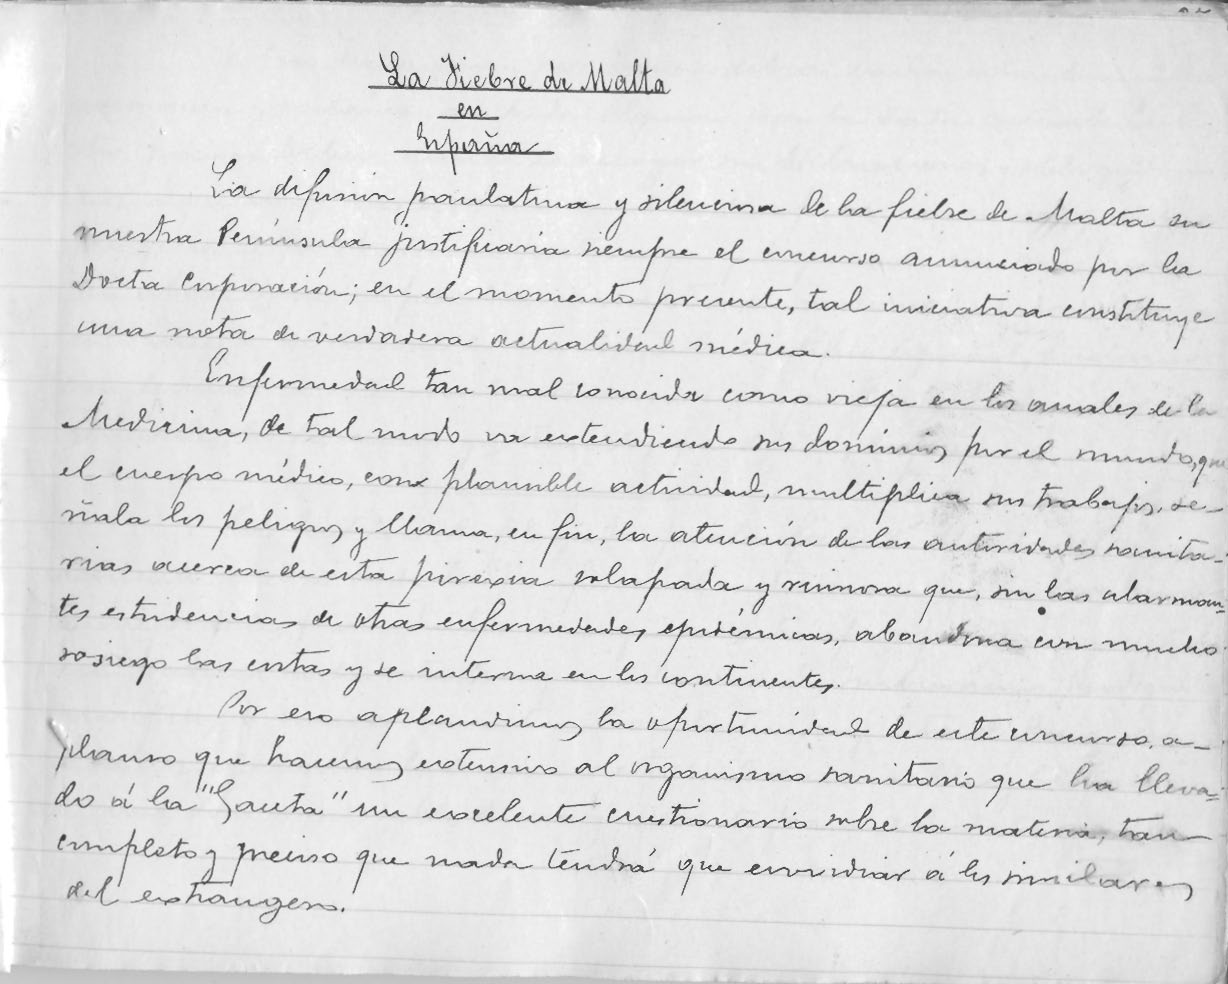 La Fiebre de Malta
en
España
La difusión paulatina y silenciosa de la fiebre de Malta en
nuestra Península justificaría siempre el concurso anunciado por la
Docta Corporación; en el momento presente, tal iniciativa constituye
una nota de verdadera actualidad médica.
Enfermedad tan mal conocida como vieja en los anales de la
Medicina, de tal modo va extendiendo sus dominios por el mundo, que
el cuerpo médico, con plausible actividad, multiplica sus trabajos, se-
ñala los peligros y llama, en fin, la atención de las autoridades sanita-
rias acerca de esta pirexia solapada y ruinosa que, sin las alarman-
tes estridencias de otras enfermedades epidémicas, abandona con mucho
sosiego las costas y se interna en los continentes.
Por eso aplaudimos la oportunidad de este concurso, a-
plauso que hacemos extensivo al organismo sanitario que ha lleva-
do á la "Gaceta" un excelente cuestionario sobre la materia, tan
completo y preciso que nada tendrá que envidiar á los similares
del extrangero.